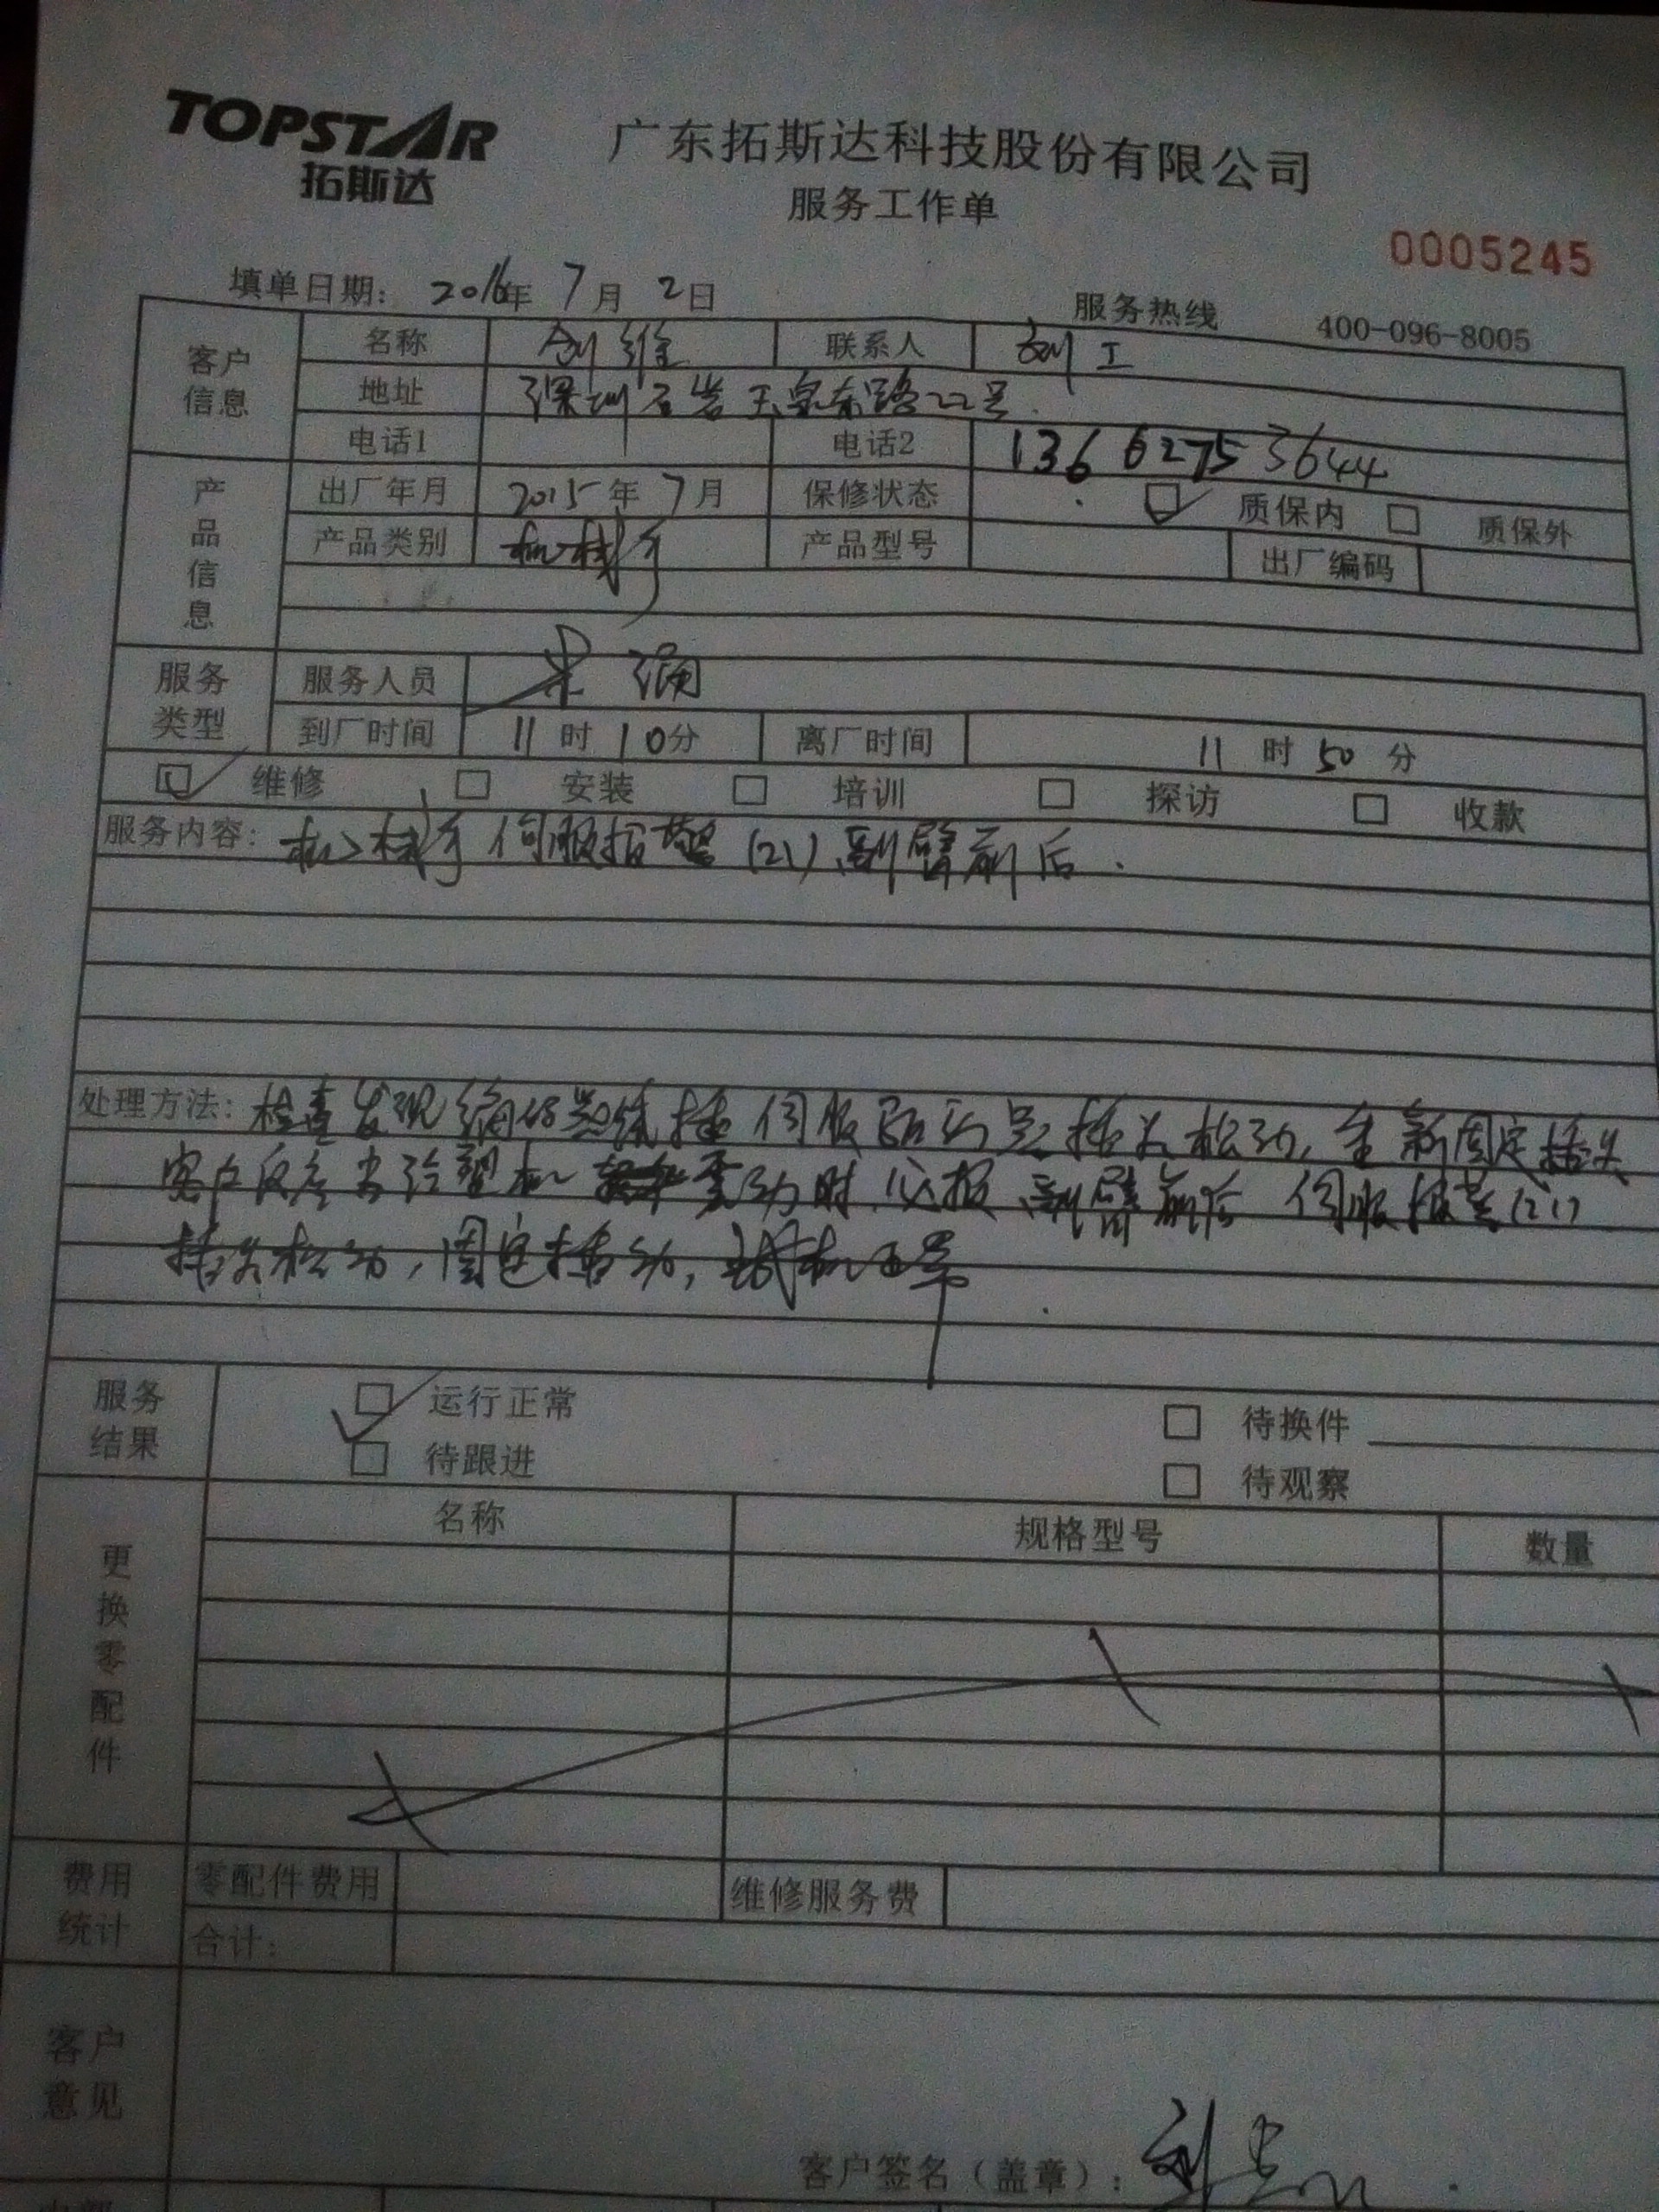 TOPSTAR
拓斯达
广东拓斯达科技股份有限公司
服务工作单
0005245
填单日期: 2016年 7月 2日
服务热线 400-096-8005
客户信息
名称 创维 联系人 刘工
地址 深圳石岩玉泉东路22号.
电话1 电话2 13662753644
产品信息
出厂年月 2015年 7月 保修状态 质保内 质保外
产品类别 机械手 产品型号 出厂编码
服务类型
服务人员
到厂时间 11时10分 离厂时间 11时50分
维修 安装 培训 探访 收款
服务内容: 机械手伺服报警(21)副臂前后.
处理方法: 检查发现编码器线插伺服驱动器插头松动,重新固定插头
客户反应当注塑机 震动时,必报副臂前后 伺服报警(21)
插头松动,固定插头,试机正常
服务结果
运行正常 待换件
待跟进 待观察
更换零配件
名称 规格型号 数量
费用统计
零配件费用 维修服务费
合计:
客户意见
客户签名(盖章): 刘